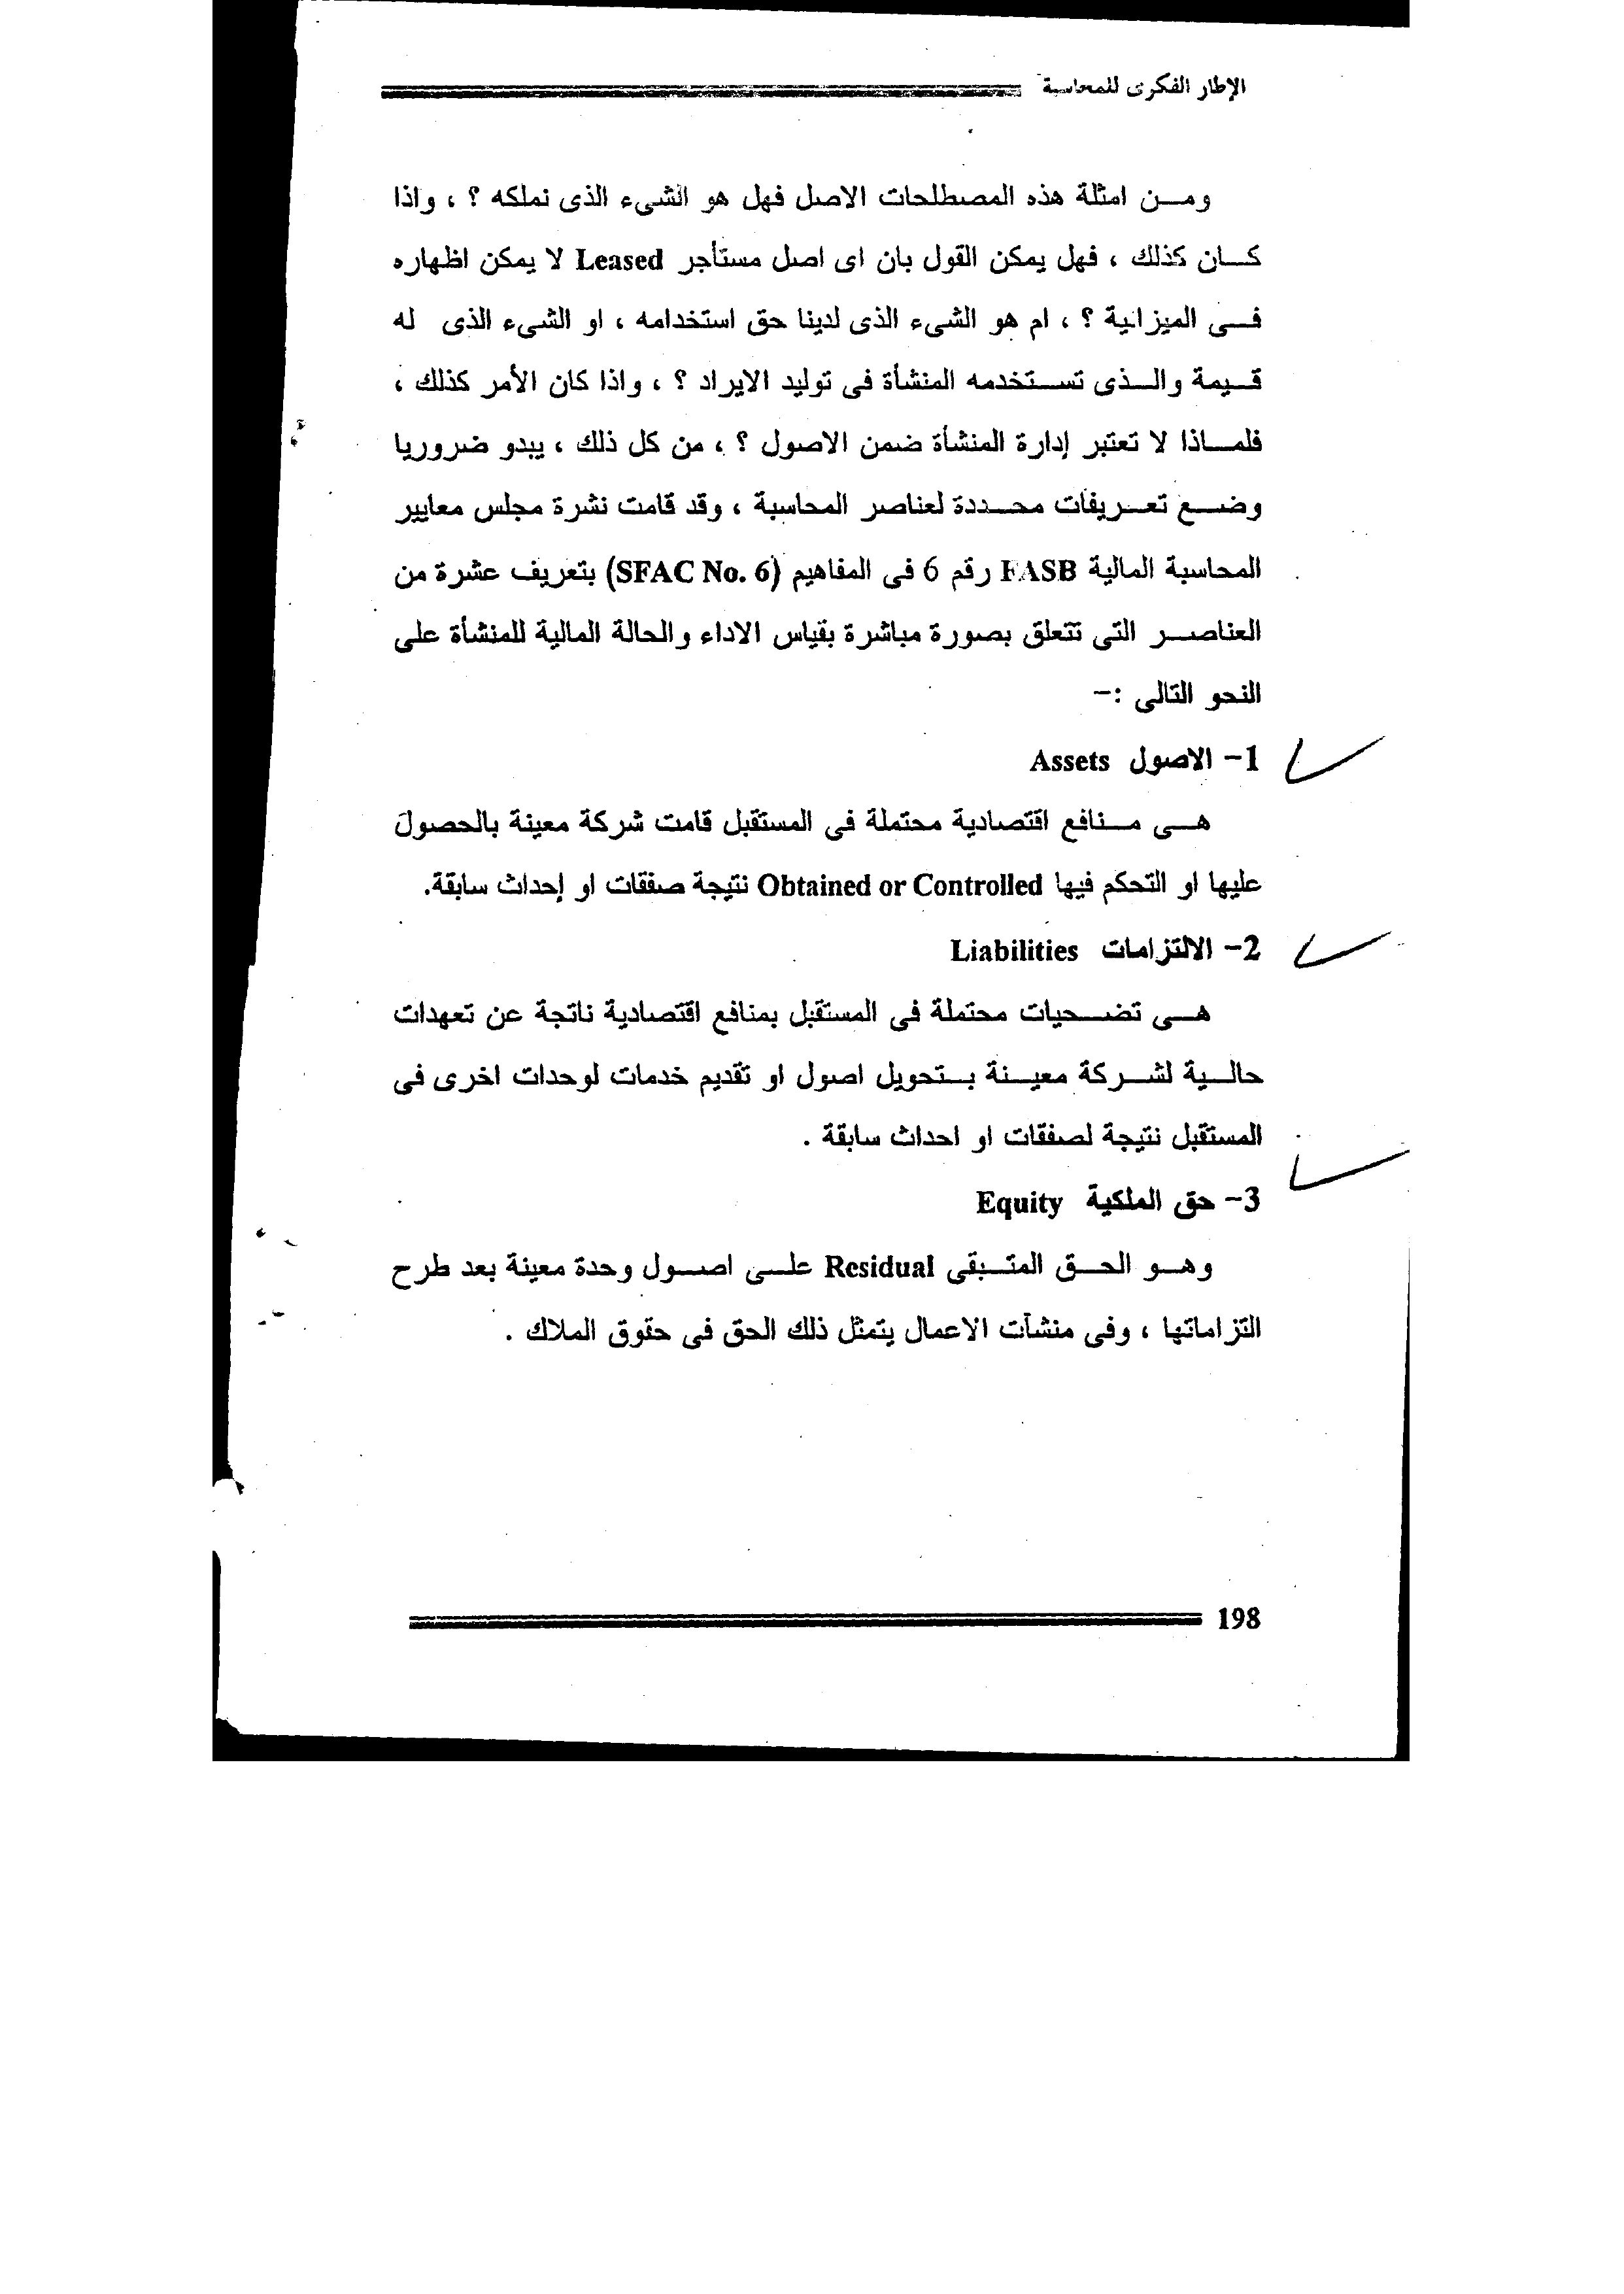 الإطار الفكرى للمحاسبة
ومن امثلة هذه المصطلحات الاصل فهل هو الشىء الذى نملكه ؟ ، واذا
كان كذلك ، فهل يمكن القول بان اى اصل مستأجر Leased لا يمكن اظهاره
فى الميزانية ؟ ، ام هو الشىء الذى لدينا حق استخدامه ، او الشىء الذى له
قيمة والذى تستخدمه المنشأة فى توليد الايراد ؟ ، واذا كان الأمر كذلك ،
فلماذا لا تعتبر إدارة المنشأة ضمن الاصول ؟ ، من كل ذلك ، يبدو ضروريا
وضع تعريفات محددة لعناصر المحاسبة ، وقد قامت نشرة مجلس معايير
المحاسبة المالية FASB رقم 6 فى المفاهيم (SFAC No. 6) بتعريف عشرة من
العناصر التى تتعلق بصورة مباشرة بقياس الاداء والحالة المالية للمنشأة على
النحو التالى :-
1- الاصول Assets
هى منافع اقتصادية محتملة فى المستقبل قامت شركة معينة بالحصول
عليها او التحكم فيها Obtained or Controlled نتيجة صفقات او إحداث سابقة.
2- الالتزامات Liabilities
هى تضحيات محتملة فى المستقبل بمنافع اقتصادية ناتجة عن تعهدات
حالية لشركة معينة بتحويل اصول او تقديم خدمات لوحدات اخرى فى
المستقبل نتيجة لصفقات او احداث سابقة .
3- حق الملكية Equity
وهو الحق المتبقى Residual على اصول وحدة معينة بعد طرح
التزاماتها ، وفى منشآت الاعمال يتمثل ذلك الحق فى حقوق الملاك .
198